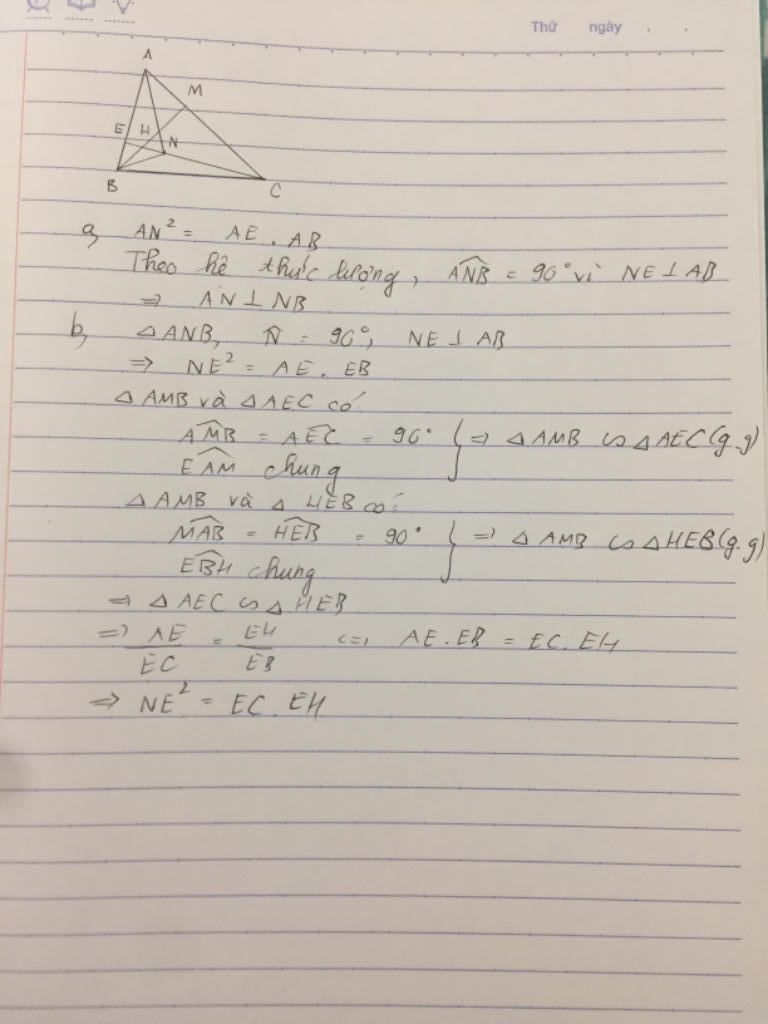 Thứ ngày . .
A
M
E H N
B
C
a, AN² = AE . AB
Theo hệ thức lượng, ANB̂ = 90° vì NE ⊥ AB
=> AN ⊥ NB
b, △ ANB, N̂ = 90°, NE ⊥ AB
=> NE² = AE . EB
△ AMB và △ AEC có:
AMB̂ = AEĈ = 90° } => △ AMB ∽ △ AEC (g.g)
EAM̂ chung
△ AMB và △ HEB có:
MAB̂ = HEB̂ = 90° } => △ AMB ∽ △ HEB (g.g)
EBĤ chung
=> △ AEC ∽ △ HEB
=> AE/EC = EH/EB <=> AE . EB = EC . EH
=> NE² = EC . EH